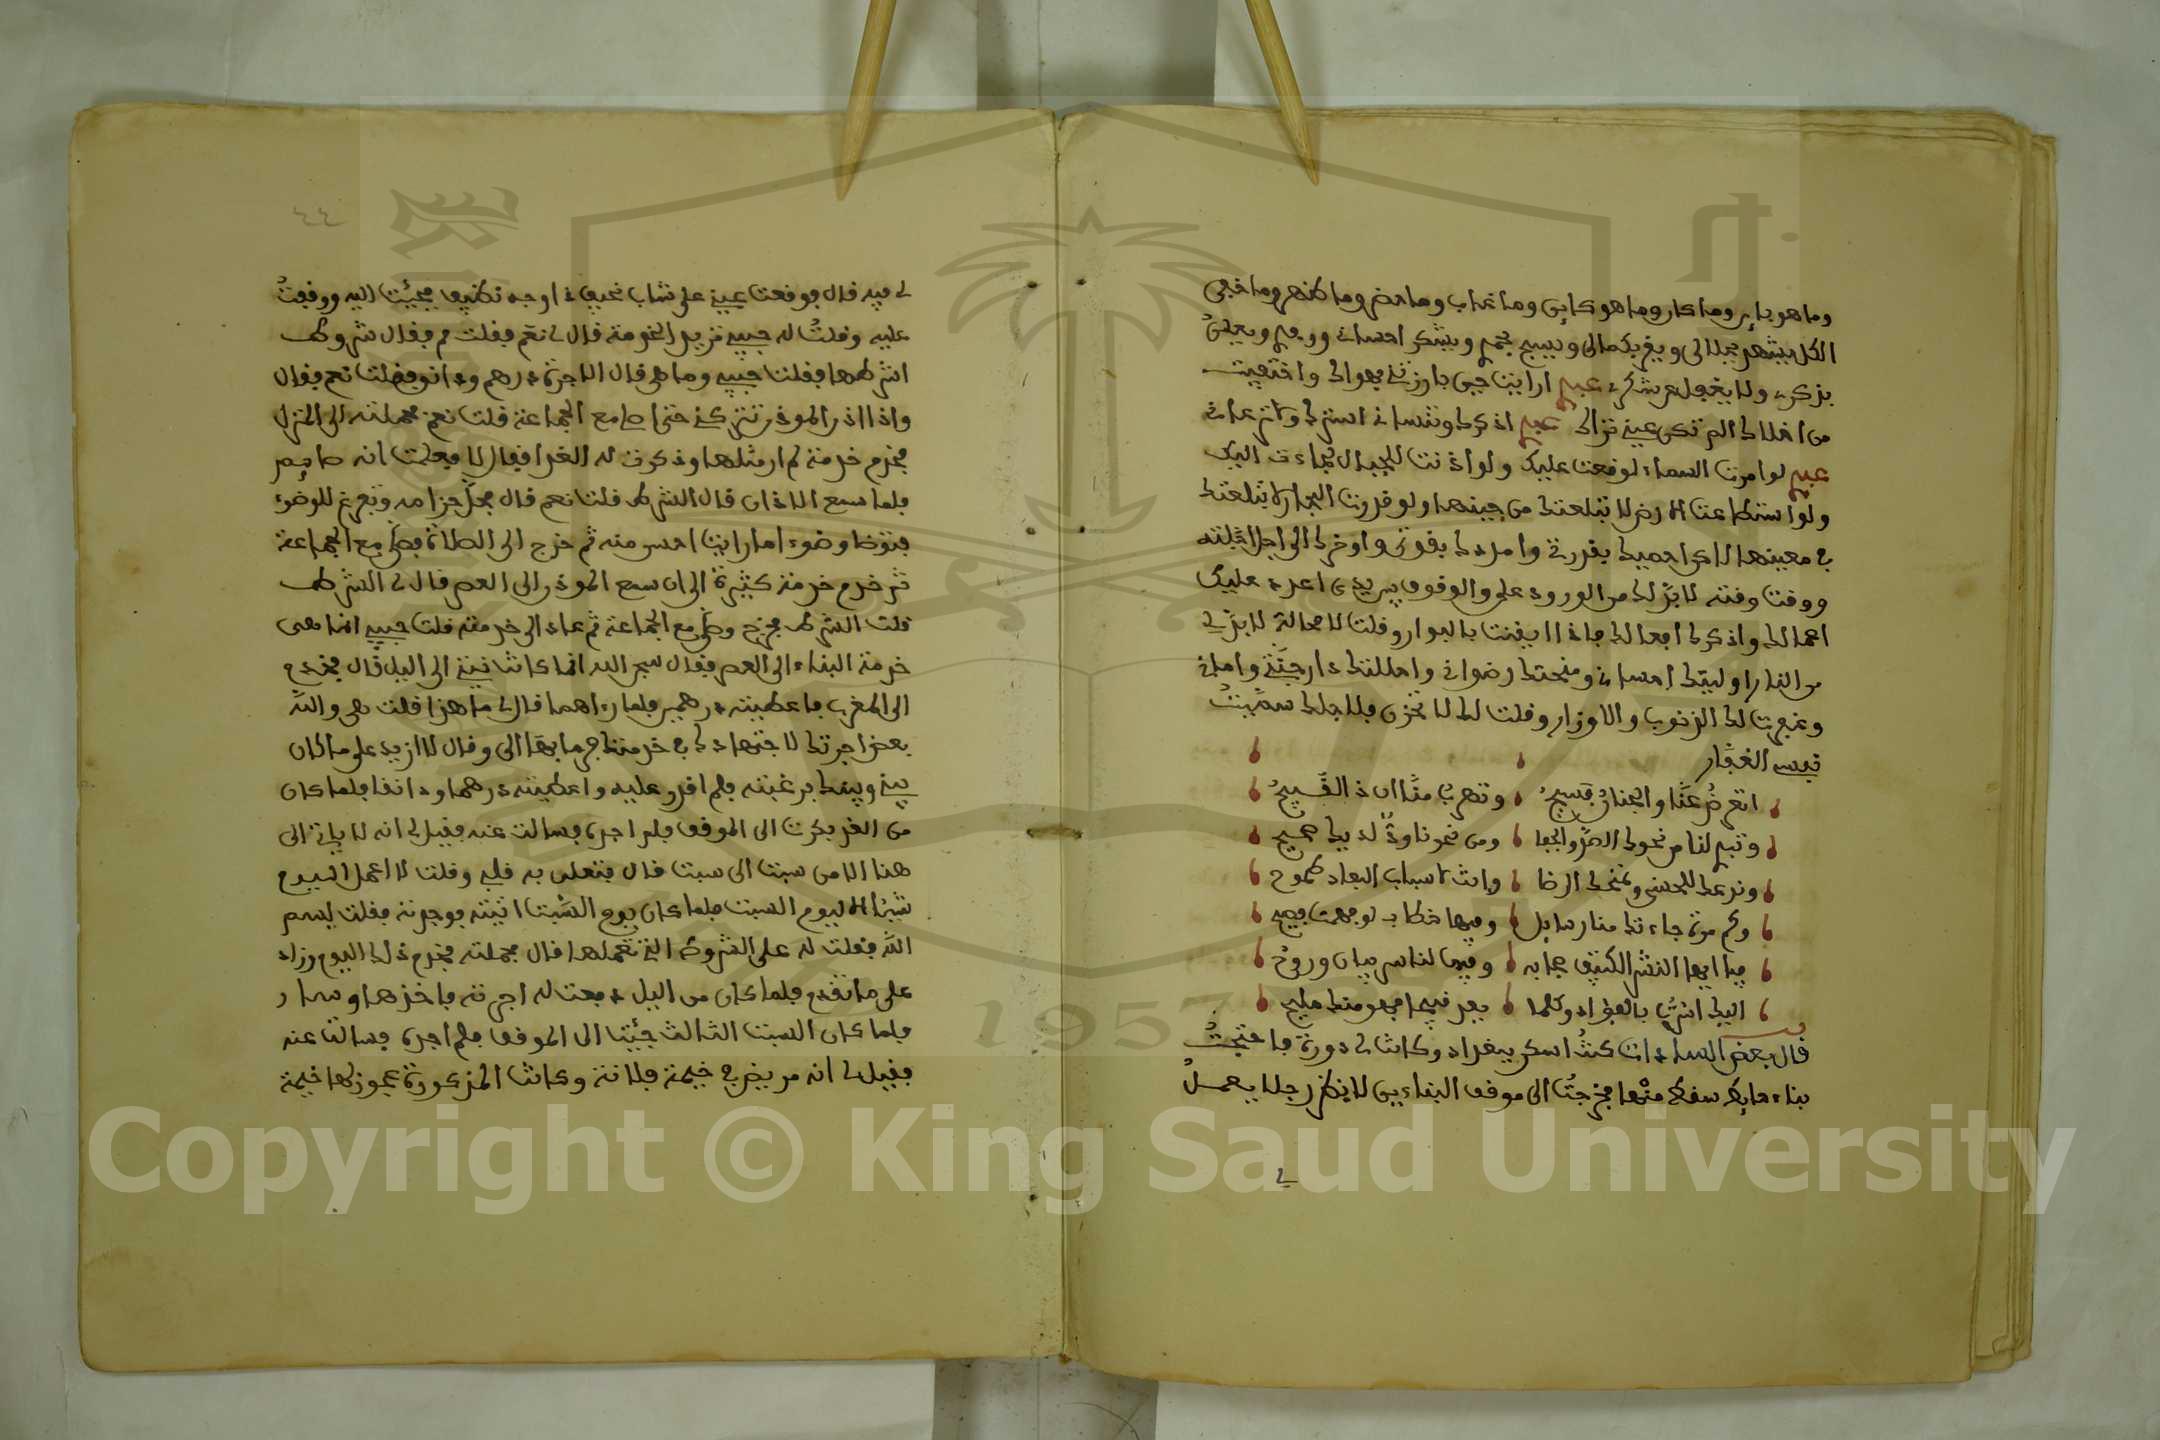 وما هو باين وما كان وما هو كاين وما غاب وما حضر وما ظهر وما خفى
الكل يشهد بجلالى ويقر بكمالى ويسبح بحمدى ويشكر احسانى وودى ويعلن
بذكرى ولا يغفل عن شكرى عبدى ارايت حين بارزتنى بهواك واختفيت
من اخلاك الم تكن عينى تراك عبدى اذكرك وتنسانى استرك وكم ترعانى
عبدى لو امرت السماء لوقعت عليك ولو اذنت للجبال لجاءت اليك
ولو استطاعت الارض لابتلعتك من حينها ولو قدرت البحار لابتلعتك
فى معينها لاكن احميك بقدرتى وامدك بقوتى واوخرك الى اجل اجلته
ووقت وقته لابد لك من الورود على والوقوف بين يدى اعدد عليك
اعمالك واذكرك افعالك فاذا ايقنت بالبوار وقلت لا محالة لابد لى
من النار اوليتك احسانى ومنحتك رضوانى واحللتك دار جنتى وامانى
وغفرت لك الذنوب والاوزار وقلت لك لا تحزن فلاجلك سميت
نفسى الغفار
اتعرض عنا والجناب فسيح وتهرب منا ان ذا لقبيح
وتبد لنا من نحوك الصد والجفا ومن نحونا ود لديك صحيح
وندعك للحسنى ونمنحك الرضا وانت لاسباب البعاد طموح
وكم مرة جاءتك منا رسايل وفيها خطاب لو فهمت فصيح
فيا ايها النشر الكتيف حجابه وفيها لناس بيان وروح
اليك اشرت بالفؤاد وكلما بعد فيها فهو منك مليح
قال بعض السادات كنت اسكن ببغداد وكانت لى دويرة فاحتجت
بناء حايط سقط منها فخرجت الى موقف البناءين لانظر رجلا يعمل
لى
٤٤
لى فيه قال فوقعت عينى على شاب نحيف ذا وجه نظيف فجئت اليه ووقفت
عليه وقلت له حبيبى تريد الخدمة قال لى نعم فقلت قم فقال شروط
اشرطها فقلت حبيبى وما هى قال الاجرة درهم ودانق فقلت نعم فقال
واذا اذن الموذن تتركنى حتى اصلى مع الجماعة قلت نعم فحملته الى المنزل
فخدم خدمة لم ار مثلها وذكرت له الغدا فقال لا فعلمت انه صايم
فلما سمع الاذان قال الشرط قلت نعم قال فحل حزامه وتفرغ للوضوء
فتوضا وضوءا ما رايت احسن منه ثم خرج الى الصلاة فصلى مع الجماعة
ثم خدم خدمة كثيرة الى ان سمع الموذن الى العصر قال لى الشرط
قلت الشرط فخرج وصلى مع الجماعة ثم عاد الى خدمته قلت حبيبى انما هى
خدمة البناء الى العصر فقال سبحن الله انما كانت نيتى الى الليل قال فخدم
الى المغرب فاعطيته درهمين فلما رءاهما قال لى ما هذا قلت هى والله
بعض اجرتك لاجتهادك فى خدمتك فرما بها الى وقال لا ازيد على ما كان
بينى وبينك فرغبته فلم اقدر عليه واعطيته درهما ودانقا فلما كان
من الغد بكرت الى الموقف فلم اجده فسالت عنه فقيل لى انه لا ياتى الى
هنا الا من سبت الى سبت قال فتعلق به قلبى وقلت لا اعمل اليوم
شيئا الا ليوم السبت فلما كان يوم السبت اتيته فوجدته فقلت بسم
الله فقلت له على الشروط التى تعملها قال فحملته فخدم ذلك اليوم وزاد
على ما تقدم فلما كان من الليل دفعت له اجرته فاخذها وسار
فلما كان السبت الثالث جئت الى الموقف فلم اجده فسالت عنه
فقيل لى انه مريض فى خيمة فلانة وكانت المذكورة عجوز لها خيمة